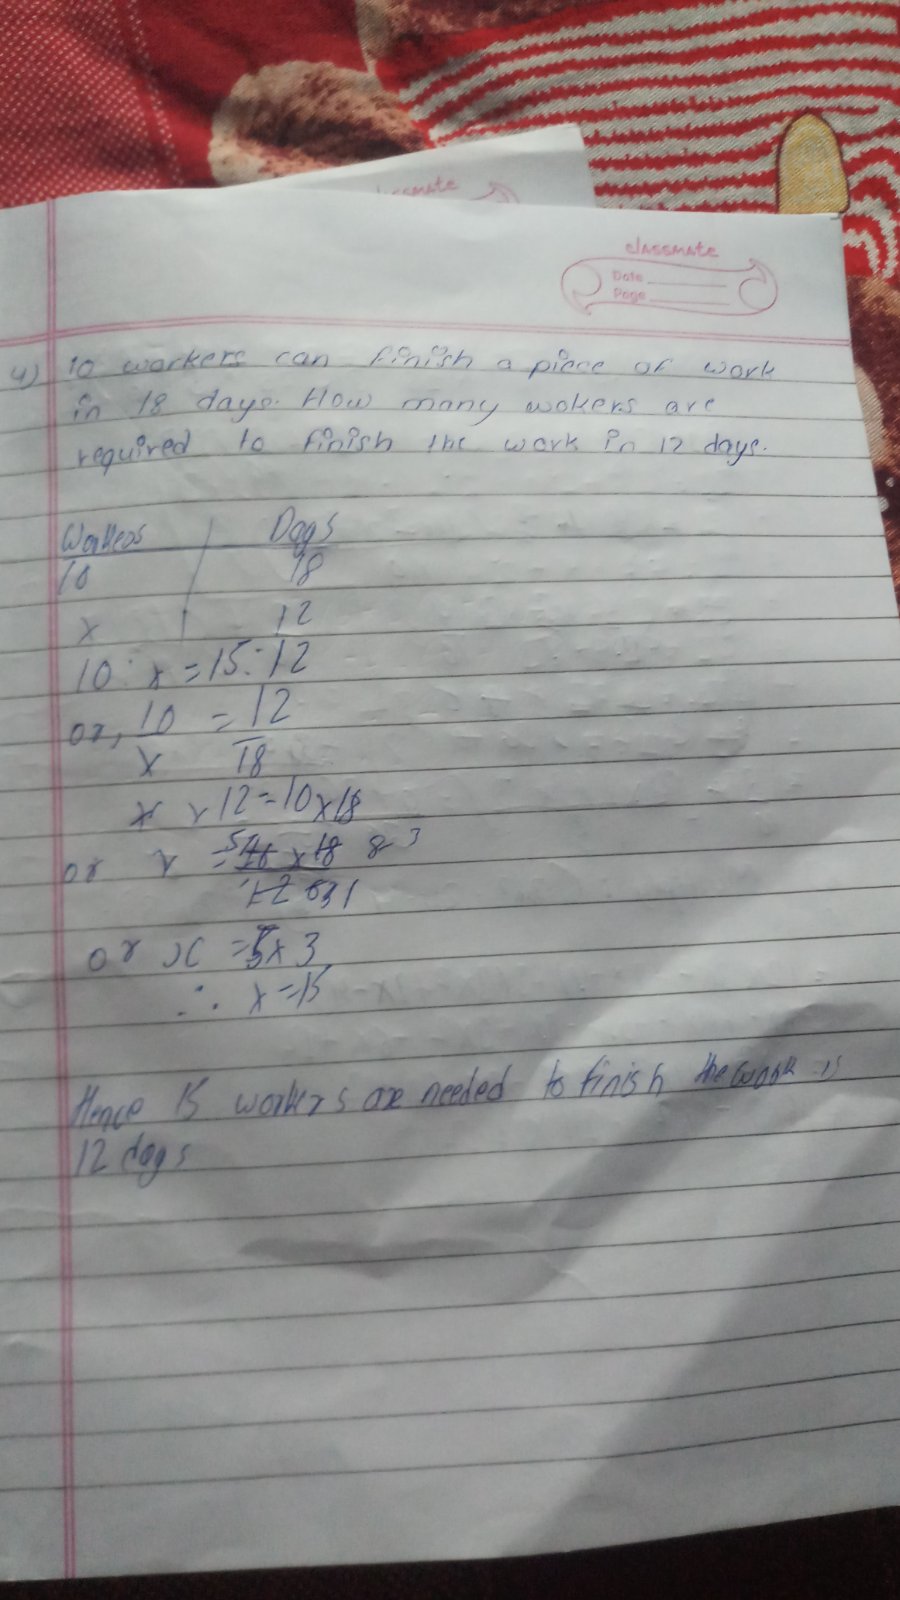 classmate
classmate
Date
Page
4) 10 workers can finish a piece of work
in 18 days. How many wokers are
required to finish the work in 12 days.
Workers | Days
10 18
x 12
10 : x = 15 : 12
or, 10/x = 12/18
x × 12 = 10 × 18
or x = 10 × 18 3
12
or x = 5 × 3
∴ x = 15
Hence 15 workers are needed to finish the work is
12 days